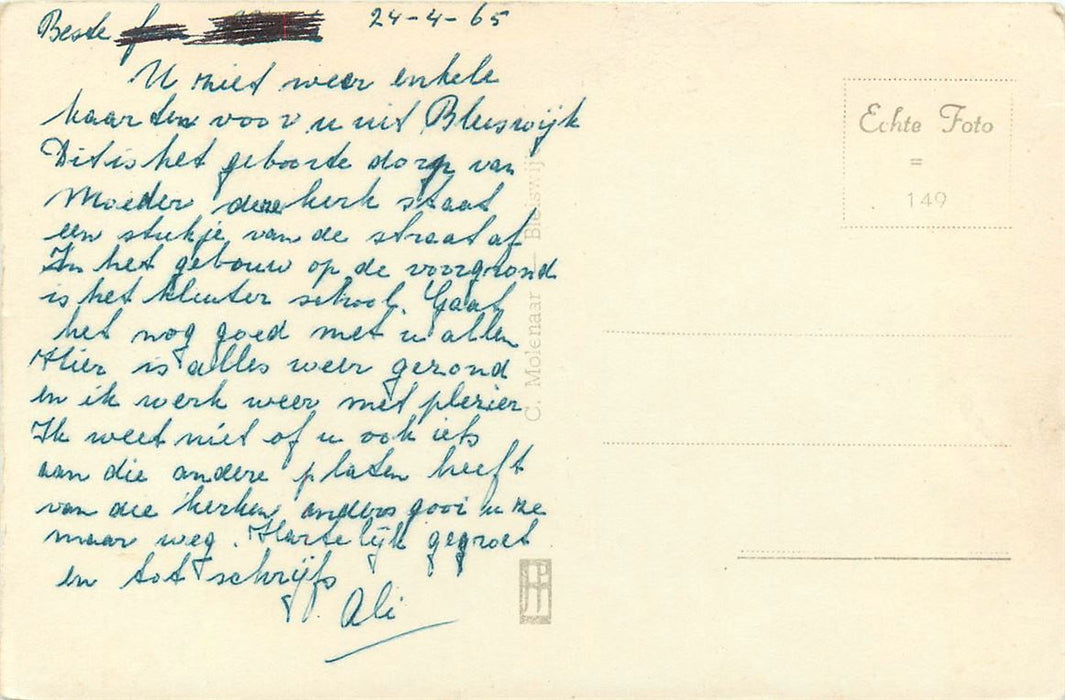 Beste 24-4-65
U ziet weer enkele
kaarten voor u uit Bleiswijk
Dit is het geboorte dorp van
Moeder deze kerk staat
een stukje van de straat af
In het gebouw op de voorgrond
is het kleuter school. Gaat
het nog goed met u allen
Hier is alles weer gezond
en ik werk weer met plezier
Ik weet niet of u ook iets
aan die andere platen heeft
van die kerken anders gooi u ze
maar weg. Hartelijk gegroet
en tot schrijfs
Ali
C. Molenaar - Bleiswijk
Echte Foto
=
149